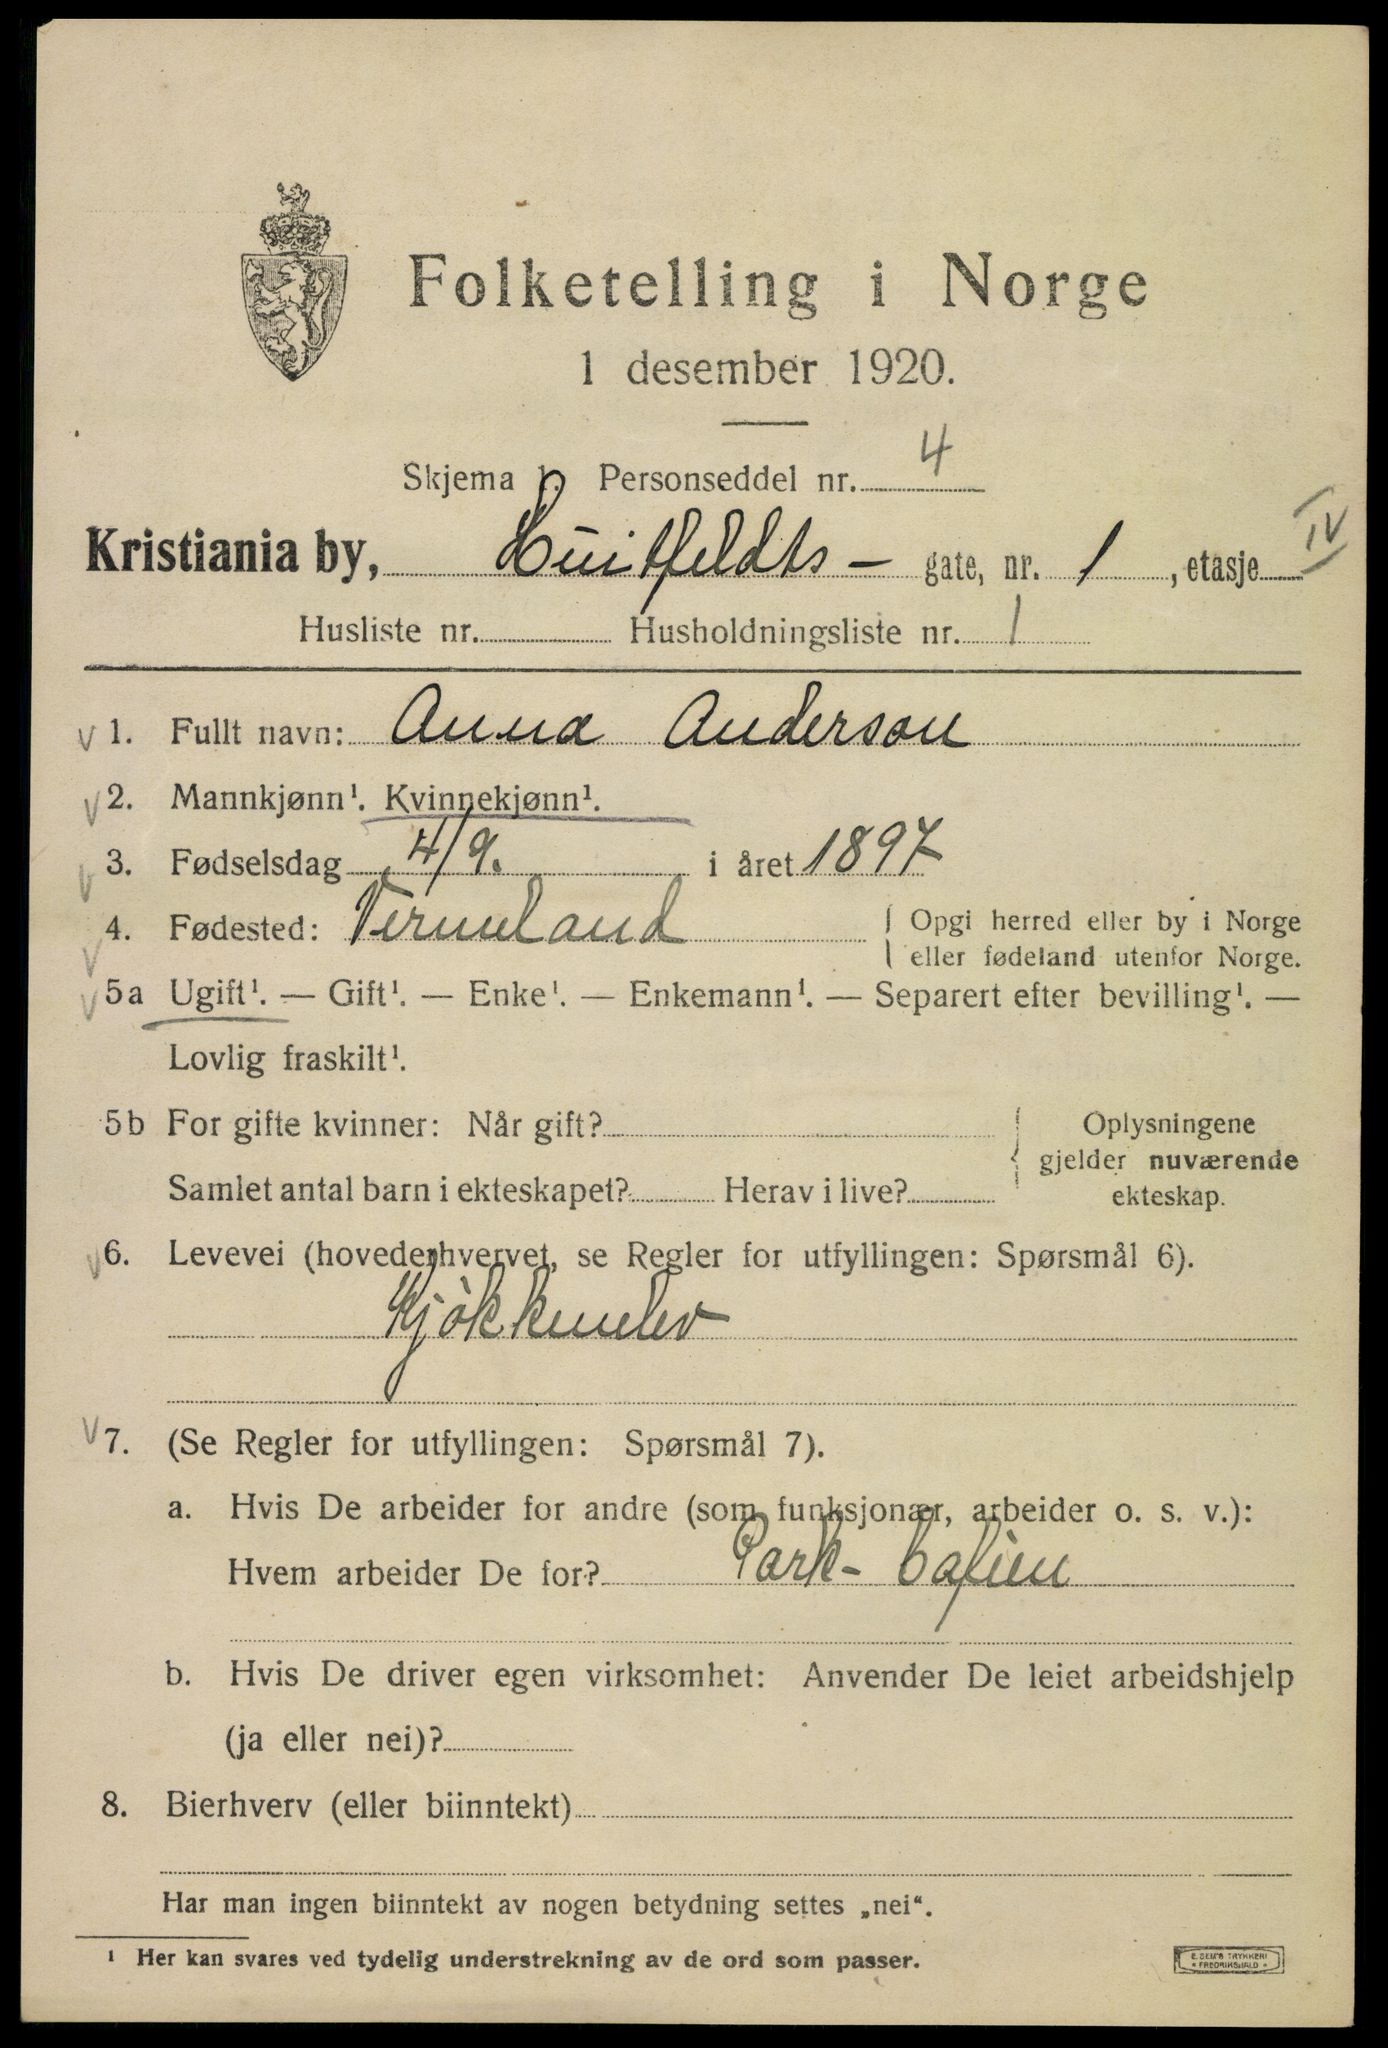 Folketelling i Norge
1 desember 1920.
Skjema 1. Personseddel nr. 4
Kristiania by, Huitfeldts - gate, nr. 1, etasje IV
Husliste nr. Husholdningsliste nr. 1
V 1. Fullt navn: Anna Anderson
V 2. Mannkjønn¹. Kvinnekjønn¹.
V 3. Fødselsdag 4/9. i året 1897
V 4. Fødested: Vermeland { Opgi herred eller by i Norge
eller fødeland utenfor Norge.
V 5a Ugift¹. — Gift¹. — Enke¹. — Enkemann¹. — Separert efter bevilling¹. —
Lovlig fraskilt¹.
5b For gifte kvinner: Når gift? Oplysningene
gjelder nuværende
Samlet antal barn i ekteskapet? Herav i live? ekteskap.
V 6. Levevei (hovederhvervet, se Regler for utfyllingen: Spørsmål 6).
Kjökkenelev
V 7. (Se Regler for utfyllingen: Spørsmål 7).
a. Hvis De arbeider for andre (som funksjonær, arbeider o. s. v.):
Hvem arbeider De for? Park-Cafeen
b. Hvis De driver egen virksomhet: Anvender De leiet arbeidshjelp
(ja eller nei)?
8. Bierhverv (eller biinntekt)
Har man ingen biinntekt av nogen betydning settes „nei“.
¹ Her kan svares ved tydelig understrekning av de ord som passer.
E. SEM'S TRYKKERI
* FREDRIKSHALD *